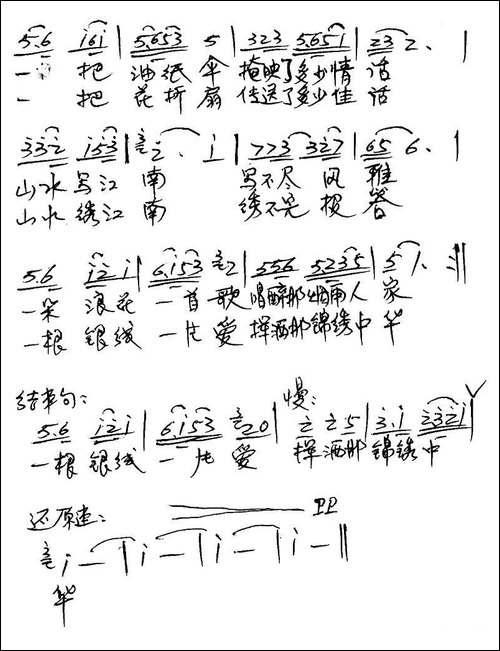 5.6 1̇61̇ | 5.653 5 | 323 5.651 | 23 2. |
一 把 油纸 伞 掩映了多少情 话
一 把 花折 扇 传送了多少佳 话
3̇3̇2̇ 1̇53̇ | 2̇. 1̇ | 773 327 | 65 6. |
山水 写江 南 写不尽 风 雅
山水 绣江 南 绣不完
5.6 1̇2̇ 1̇ | 6.1̇53 2 | 556 5235 | 5 1. :‖
一朵 浪花 一首 歌 唱醉那烟雨人 家
一根 银线 一片 爱 挥洒那锦绣中 华
结束句: 慢:
5.6 1̇2̇1̇ | 6.1̇53̇ 2̇0 2̇ 2̇ 5 | 3̇.1̇ 2̇3̇2̇1̇ |
一根 银线 一片 爱 挥 洒那 锦绣 中
还原速: PP
1̇ — | 1̇ — | 1̇ — | 1̇ — ‖
华